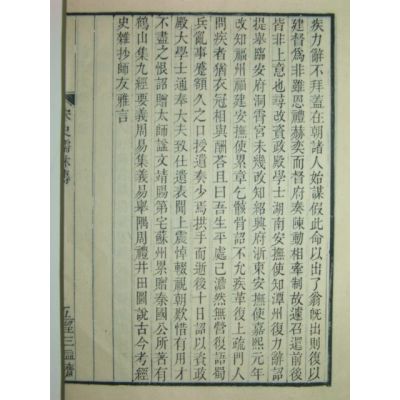 疾力辭不拜蓋在朝諸人始謀假此命以出了翁旣出則復以
建督爲非雖恩禮赫奕而督府奏陳動相牽制故遽召還前後
皆非上意也尋改資政殿學士湖南安撫使知潭州復力辭詔
提舉臨安府洞霄宮未幾改知紹興府浙東安撫使嘉熙元年
改知福州福建安撫使累章乞骸骨詔不允疾革復上疏門人
問疾者猶衣冠相與酬荅且曰吾生平處己澹然無營復語蜀
兵亂事蹙額久之口授遺奏少焉拱手而逝後十日詔以資政
殿大學士通奉大夫致仕遺表聞上震悼輟視朝歎惜有用才
不盡之恨詔贈太師謚文靖賜第宅蘇州累贈秦國公所著有
鶴山集九經要義周易集義易舉隅周禮井田圖說古今考經
史雜抄師友雅言
宋史儒林傳